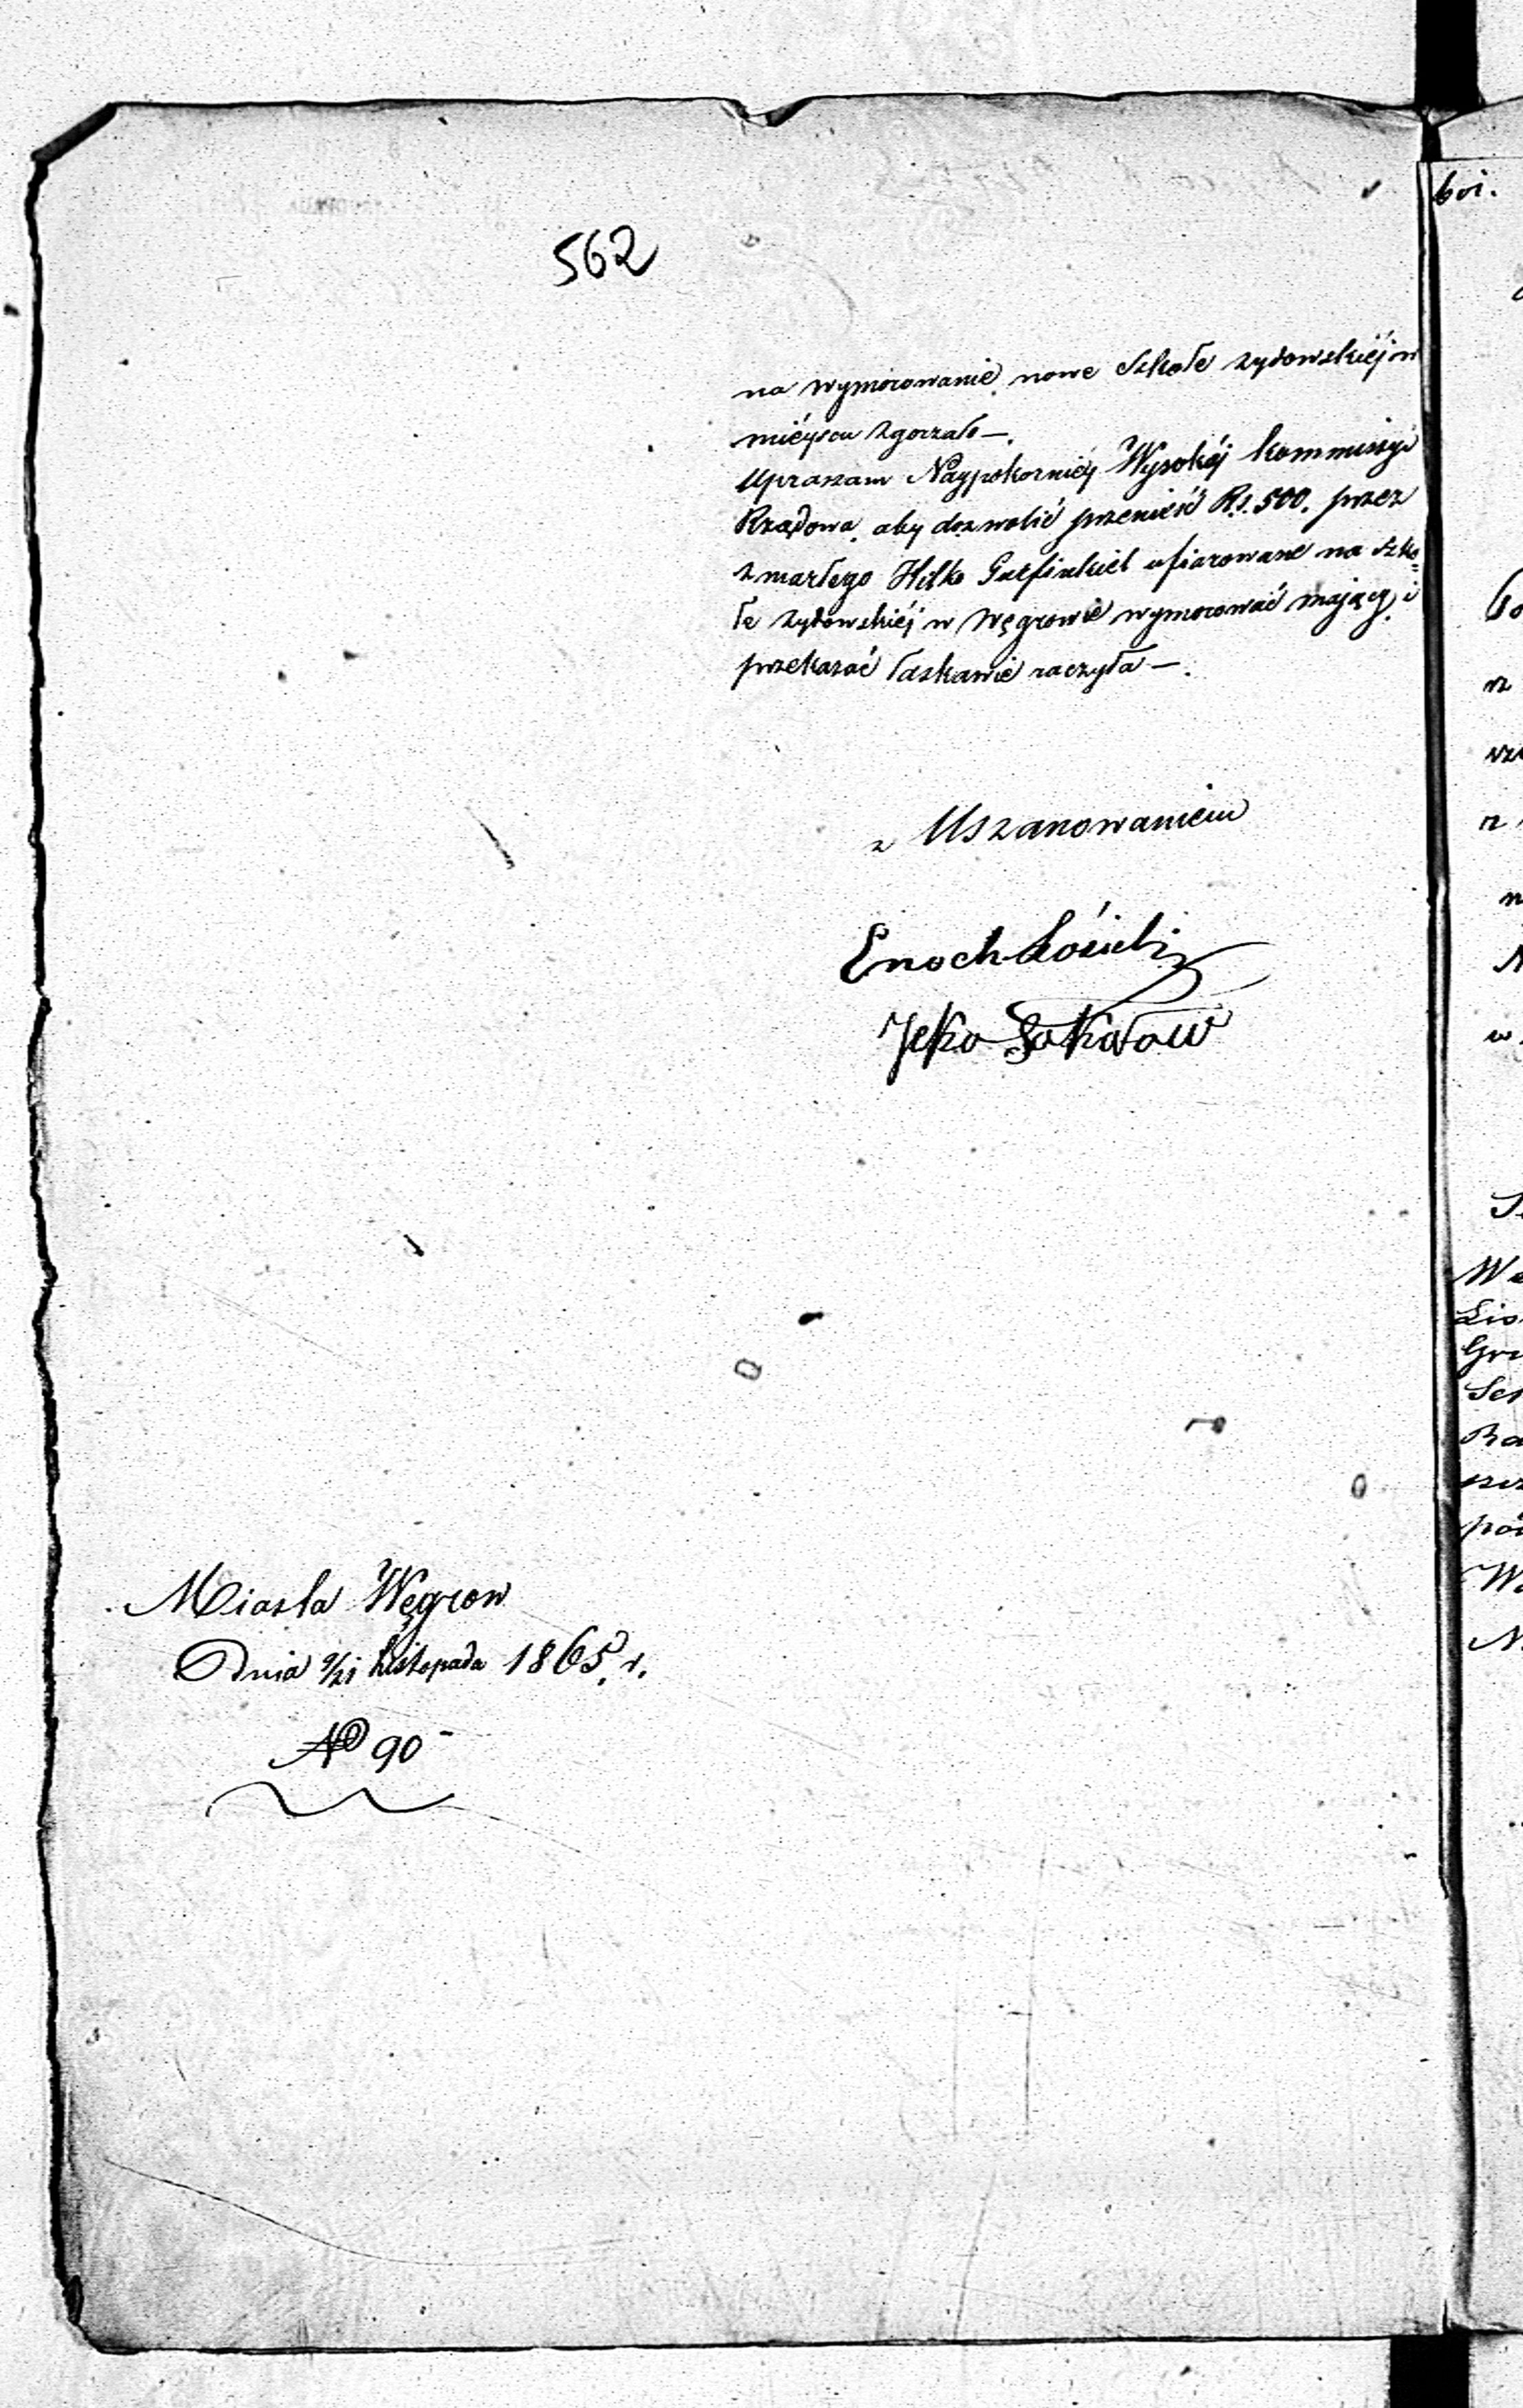 562
na wymorowanie nowe Szkołe żydowskiéj w
miéyscu zgorzało —.
Upraszam Naypokorniéy Wysokiéj Kommissyi
Rządowa, aby dozwolić przenieść Rs. 500. przez
zmarłego Hilko Gurfinkiel ofiarowane na Szko=
łe żydowskiéj w Węgrowie wymorować mający, i
przekazać łaskawie raczyła —.
z Uszanowaniem
Enoch
Jcko Sokołow
Miasta Węgrow
Dnia 9/21 Listopada 1865. r.
No 90